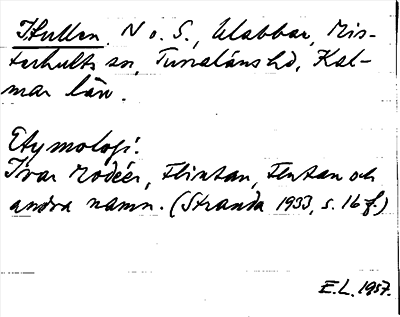 Hullen. N o. S., Klabbar, Mis-
terhults sn, Tunaläns hd, Kal-
mar län.
Etymologi:
Ivar Modéer, Flintan, Flutan och
andra namn. (Stranda 1933, s. 16 f.)
E.L. 1957.